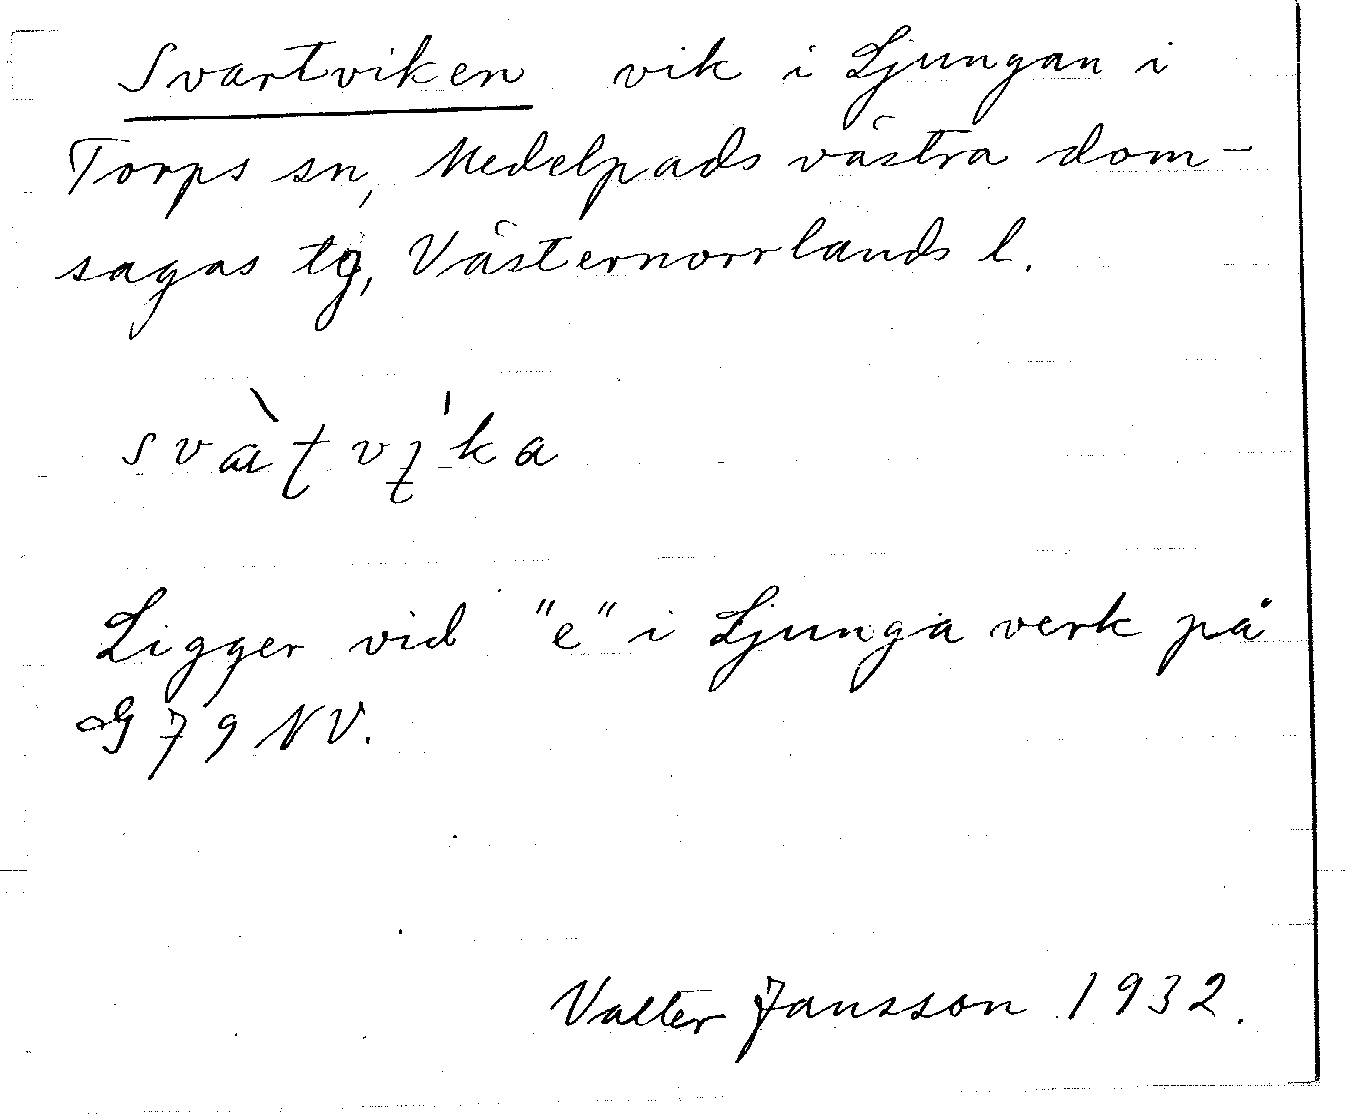 Svartviken vik i Ljungan i
Torps sn, Medelpads västra dom-
sagas tg, Västernorrlands l.
Ligger vid "e" i Ljunga verk på
G 79 NV.
Valter Jansson 1932.